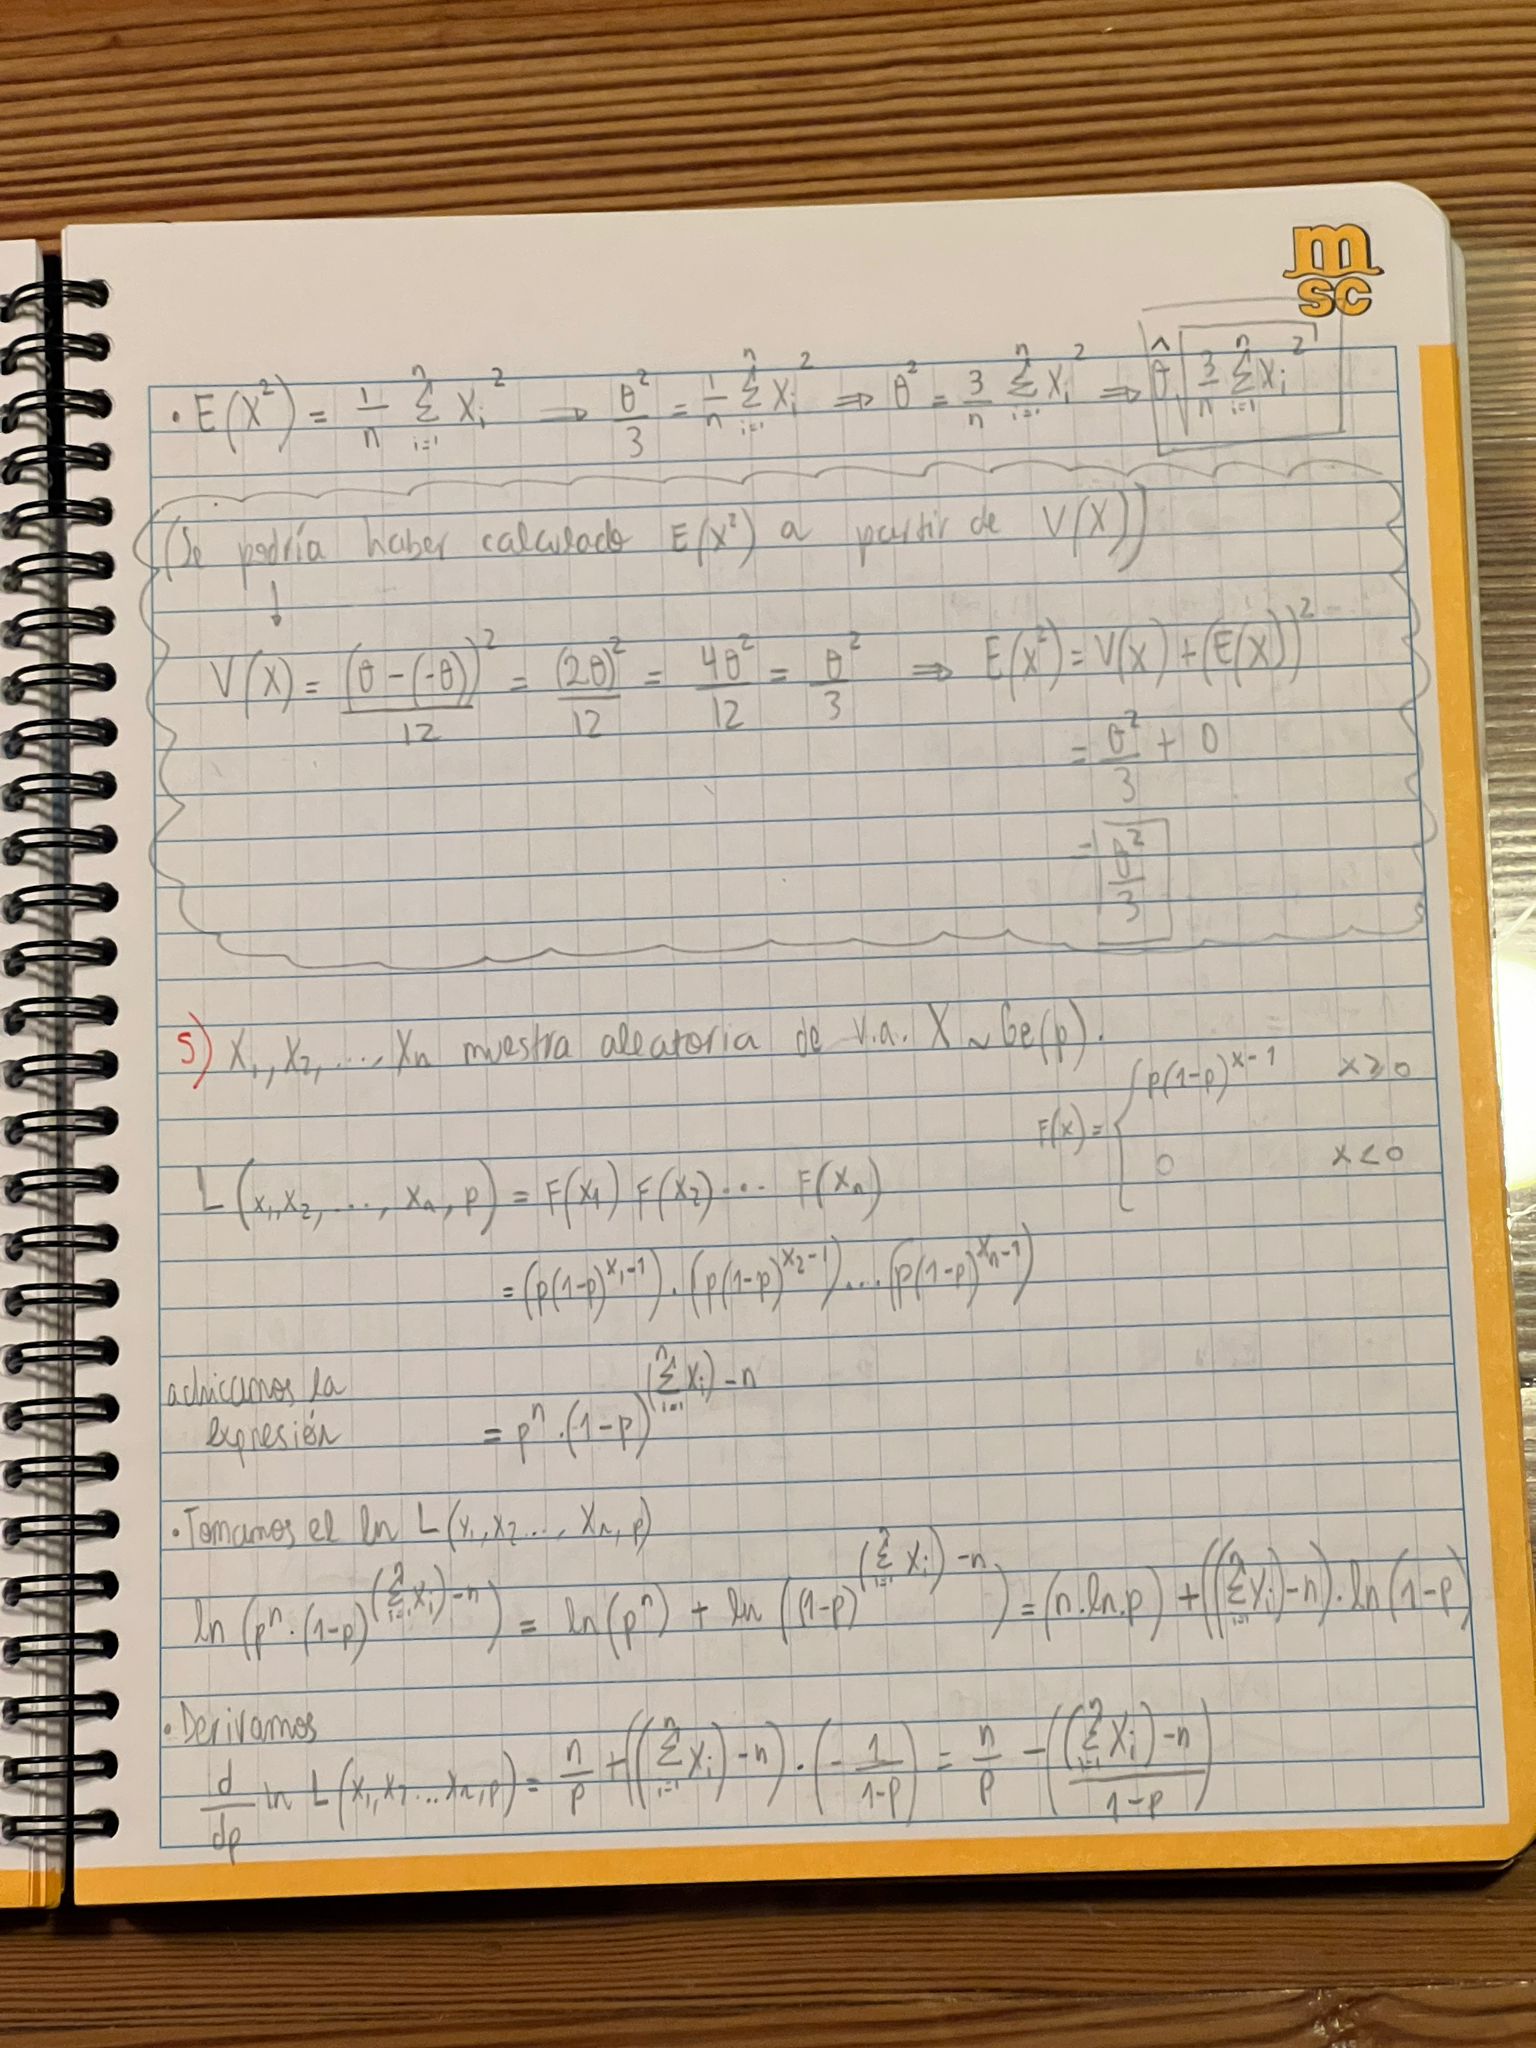 m
sc
• E(X²) = 1/n Σᵢ₌₁ⁿ Xᵢ² ⇒ θ²/3 = 1/n Σᵢ₌₁ⁿ Xᵢ² ⇒ θ² = 3/n Σᵢ₌₁ⁿ Xᵢ² ⇒ θ̂ √(3/n Σᵢ₌₁ⁿ Xᵢ²)
(Se podría haber calculado E(X²) a partir de V(X))
↓
V(X) = (θ-(-θ))²/12 = (2θ)²/12 = 4θ²/12 = θ²/3 ⇒ E(X²) = V(X) + (E(X))²
= θ²/3 + 0
= θ²/3
5) X₁, X₂, ..., Xn muestra aleatoria de v.a. X ~ Ge(p).
F(x) = { p(1-p)^(x-1) x ≥ 0
0 x < 0
L(x₁, x₂, ..., xn, p) = F(x₁) F(x₂) ... F(xn)
= (p(1-p)^(x₁-1)) · (p(1-p)^(x₂-1)) ... (p(1-p)^(xn-1))
achicamos la
expresión = pⁿ · (1-p)^((Σᵢ₌₁ⁿ Xᵢ) - n)
• Tomamos el ln L(x₁, x₂ ..., xn, p)
ln(pⁿ · (1-p)^((Σᵢ₌₁ⁿ Xᵢ) - n)) = ln(pⁿ) + ln((1-p)^((Σᵢ₌₁ⁿ Xᵢ) - n)) = (n · ln · p) + ((Σᵢ₌₁ⁿ Xᵢ) - n) · ln(1-p)
• Derivamos
d/dp ln L(x₁, x₂ ... xn, p) = n/p + ((Σᵢ₌₁ⁿ Xᵢ) - n) · (- 1/(1-p)) = n/p - (((Σᵢ₌₁ⁿ Xᵢ) - n)/(1-p))